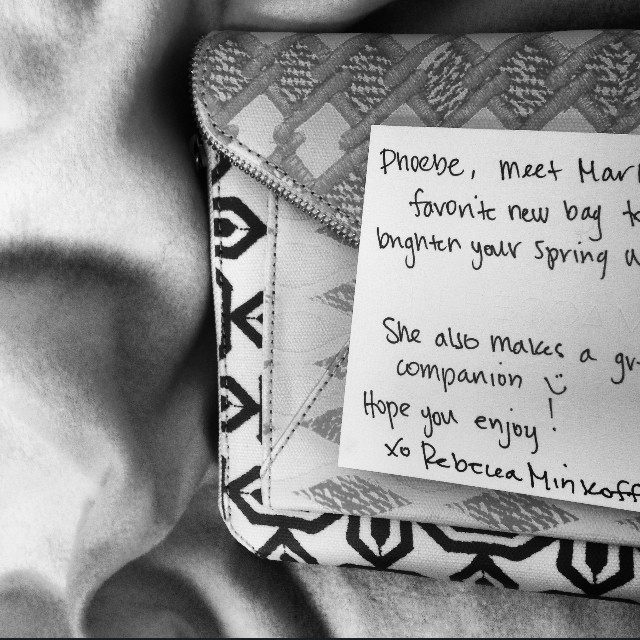 Phoebe, meet
favorite new bag
brighten your spring
She also makes a
companion :)
Hope you enjoy!
xo Rebecca Minkoff